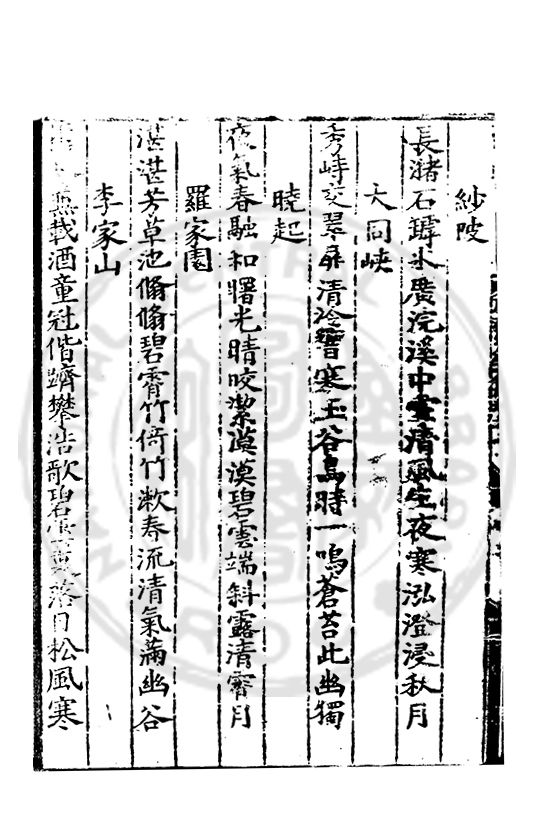 紗陂
長瀦石罅水廣浣溪中雪清風生夜寒泓澄浸秋月
大同峽
秀峙交翠屏清泠響寒玉谷鳥時一鳴蒼苔此幽獨
曉起
夜氣春融和曙光晴皎潔漠漠碧雲端斜露清霄月
羅家園
湛湛芳草池翛翛碧霄竹倚竹漱春流清氣滿幽谷
李家山
無載酒童冠偕躋攀浩歌碧雲裏落日松風寒